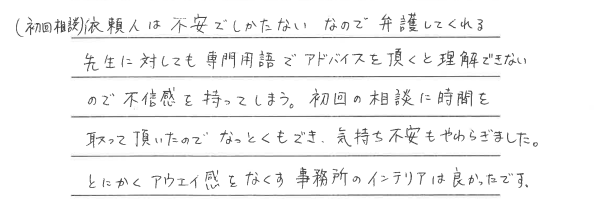 (初回相談)依頼人は不安でしかたない なので 弁護してくれる
先生に対しても専門用語でアドバイスを頂くと理解できない
ので不信感を持ってしまう。初回の相談に時間を
取って頂いたので なっとくもでき、気持ち不安もやわらぎました。
とにかくアウエイ感をなくす事務所のインテリアは良かったです。